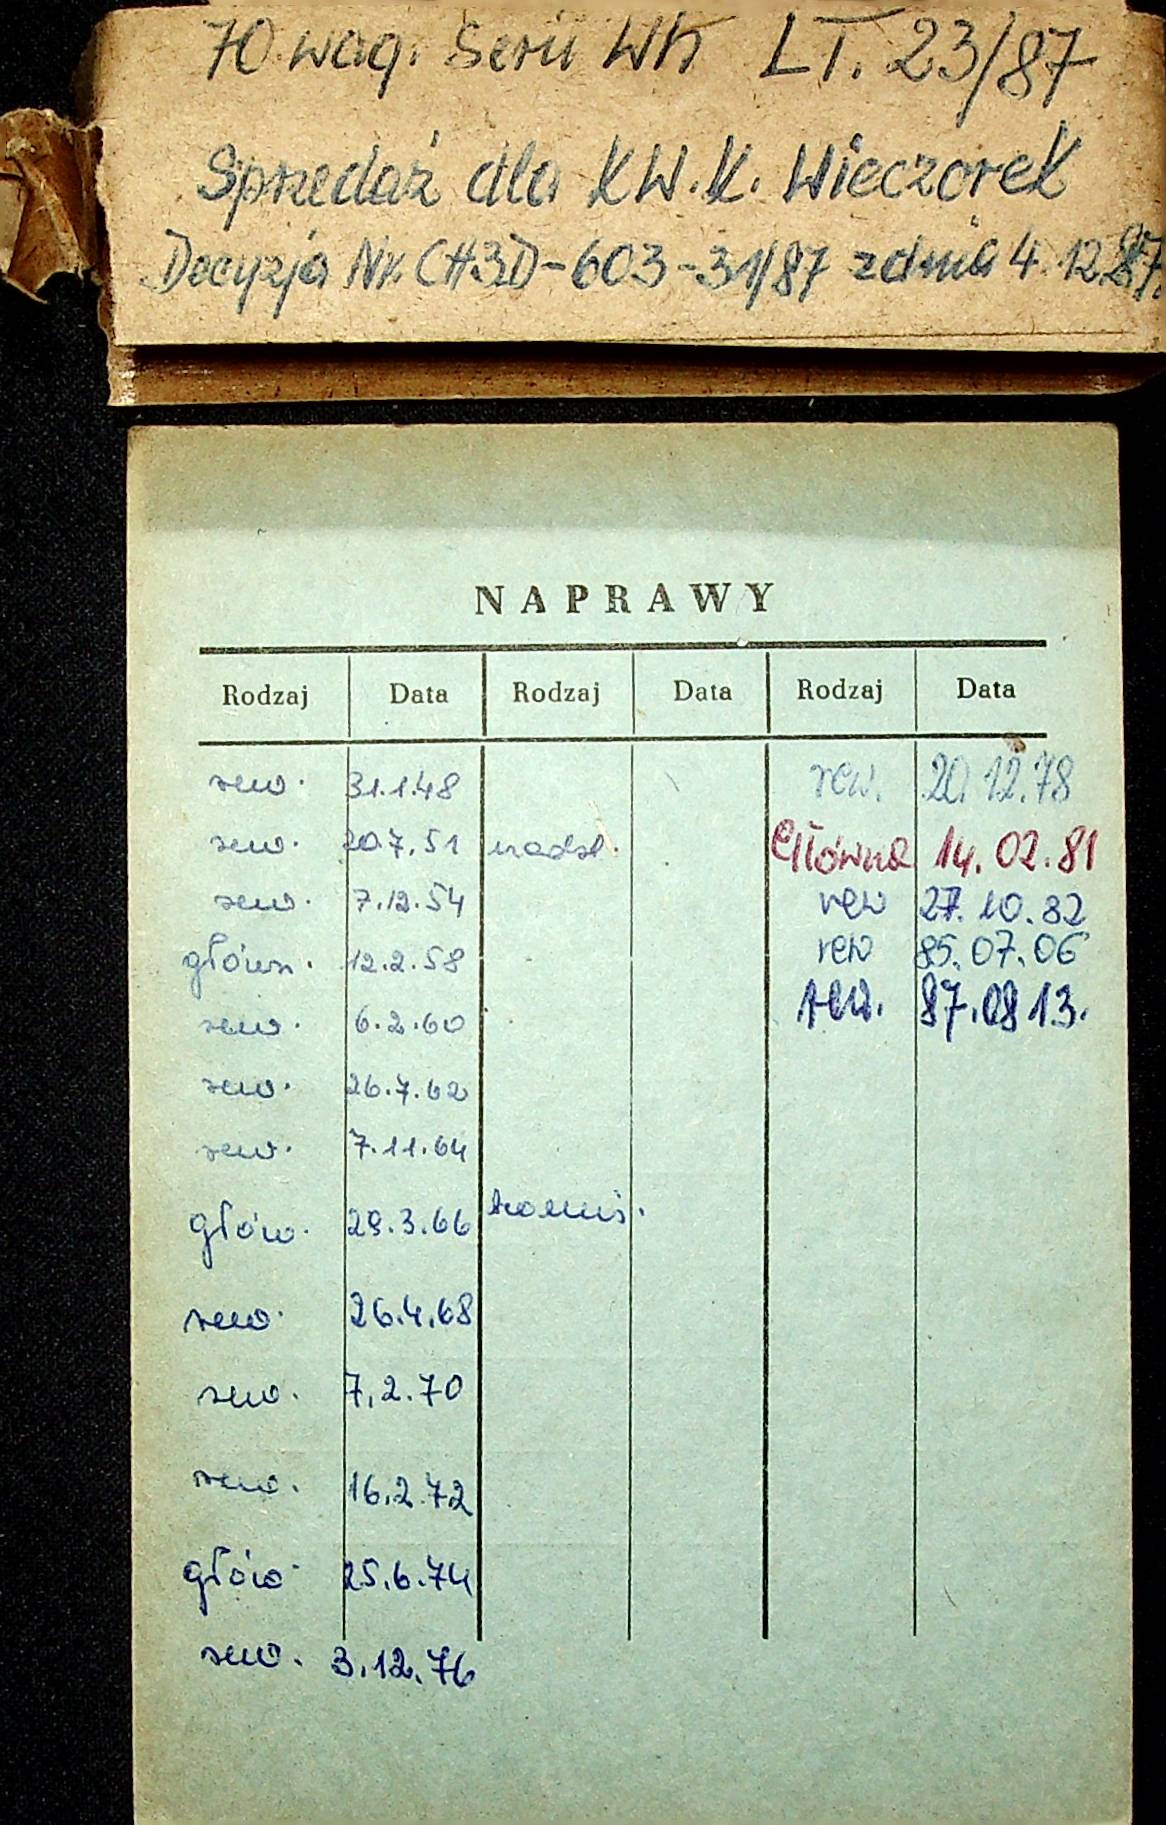 70 wag. Serii Wh LT. 23/87
Sprzedaż dla KW.K. Wieczorek
Decyzja Nr. CH3D-603-31/87 z dnia 4.12.87.
NAPRAWY
Rodzaj Data Rodzaj Data Rodzaj Data
rew. 31.1.48 rew. 20.12.78
rew. 20.7.51 nadzr. Główna 14.02.81
rew. 7.12.54 rew 27.10.82
główn. 12.2.58 rew 85.07.06
rew. 6.2.60 rew. 87.08 13.
rew. 26.7.62
rew. 7.11.64
głów. 29.3.66
rew. 26.4.68
rew. 7.2.70
rew. 16.2.72
głów 25.6.74
rew. 3.12.76